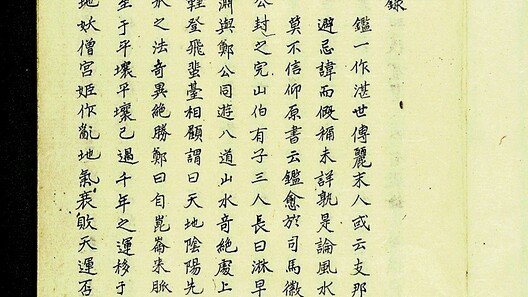 錄
鑑一作湛世傳麗末人或云支那
避忌諱而假稱未詳孰是論風水
莫不信仰原書云鑑愈於司馬徽
公封之完山伯有子三人長曰淋早
淵與鄭公同遊八道山水奇絕處上
鞋登飛蜚臺相顧謂曰天地陰陽先
水之法奇異絕勝鄭曰自崑崙來脈
至于平壤平壤已過千年之運移于
地妖僧宮姬作亂地氣衰敗天運否